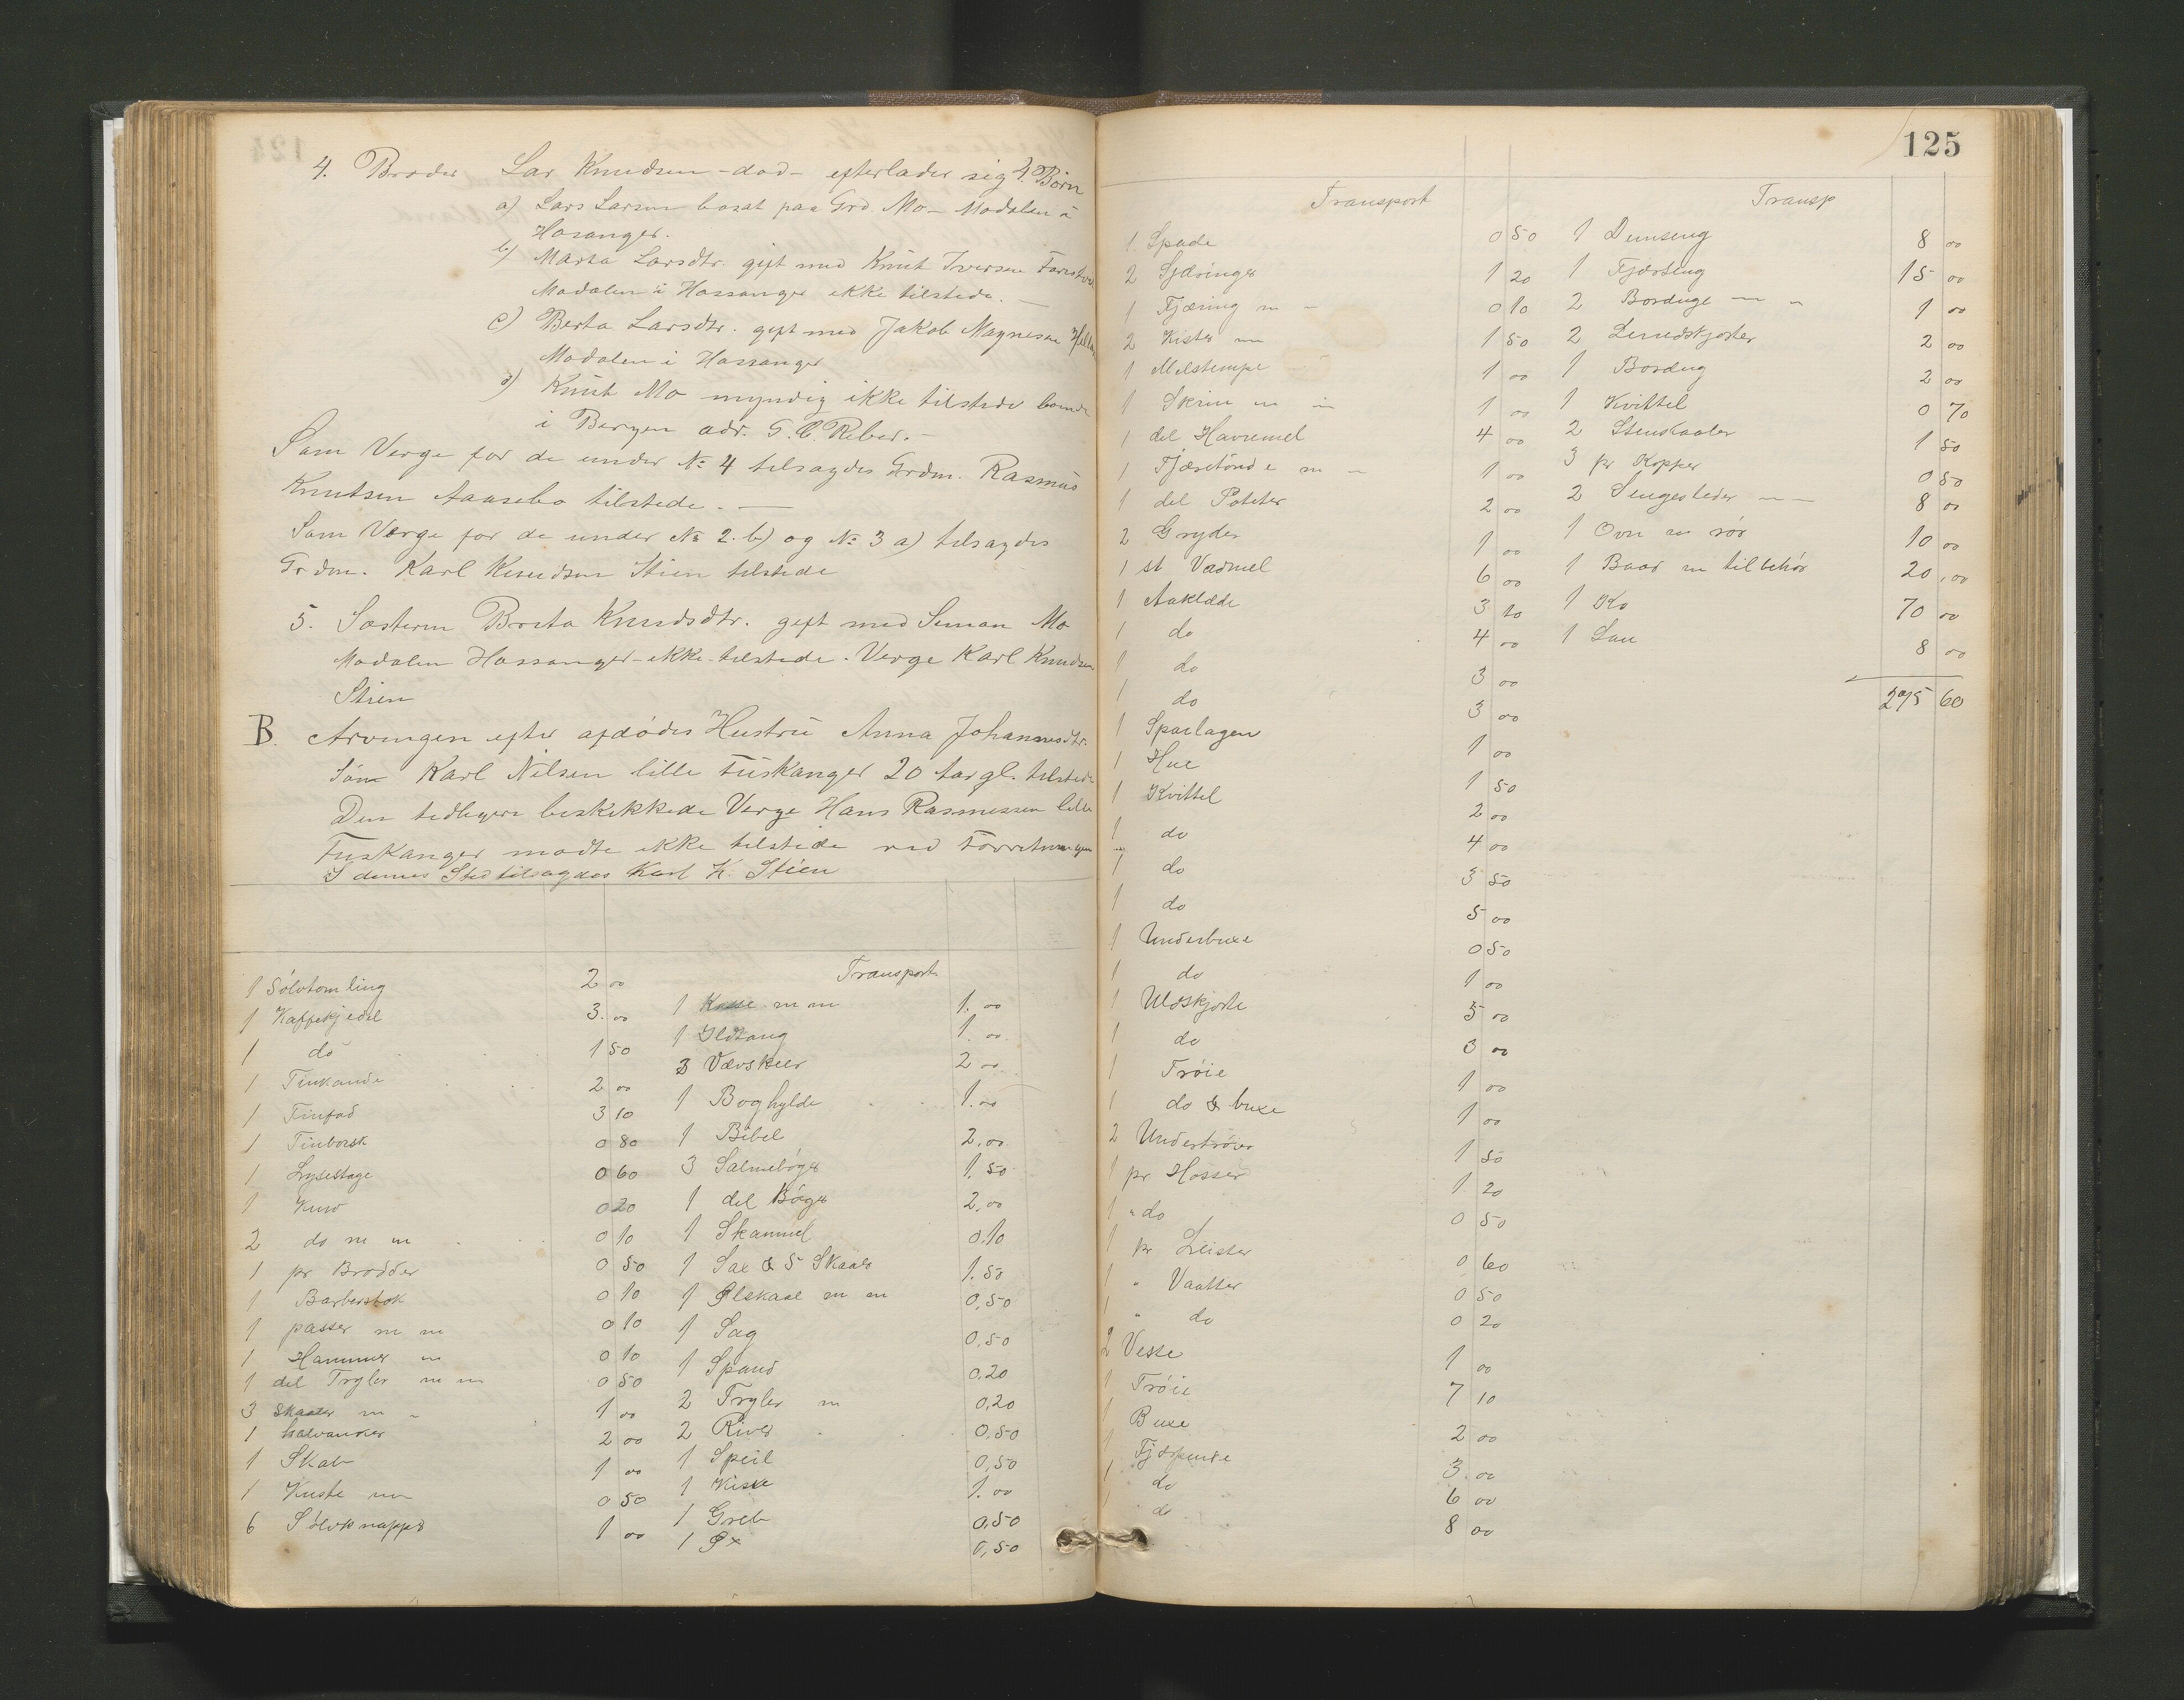 4. Broder Lar Knudsen - død - efterlader sig 4 Børn
a) Lars Larsen bosat paa Grd. Mo - Modalen i
Hosanger.
b) Marta Larsdtr. gift med Knut Iversen
Modalen i Hossanger ikke tilstede. —
c) Berta Larsdtr. gift med Jakob Magnesen
Modalen i Hossanger
d) Knut Mo myndig ikke tilstede boende
i Bergen adr. G. C. Reber. —
Som Verge for de under № 4 tilsagdes Grdm. Rasmus
Knutsen Aasebø tilstede. —
Som Verge for de under № 2. b) og № 3 a) tilsagdes
Grdm. Karl Knudsen Stien tilstede
5. Søsteren Brita Knudsdtr. gift med Simon Mo
Modalen Hossanger - ikke tilstede. Verge Karl Knudsen
Stien
B. Arvingen efter afdødes Hustru Anna Johannesdtr.
Søn Karl Nilsen lille Fuskanger 20 Aar gl. tilstede
Den tidligere beskikkede Verge Hans Rasmussen lille
Fuskanger mødte ikke tilstede ved Forretningen
I dennes Sted tilsagdes Karl K. Stien
1 Sølvtomling 2 00
1 Kaffekjedel 3. 00
1 do 1 50
1 Tinkande 2 00
1 Tinfad 3 10
1 0 80
1 Lysestage 0 60
1 Kniv 0 20
2 do m m 0 10
1 pr Brodder 0 50
1 0 10
1 passer m m 0 10
1 Hammer m 0 10
1 del Tryler m m 0 50
3 Skaaler m 1 00
1 halvanker 2 00
1 Skab 1 00
1 m 0 50
6 Sølvknapper 1 00
Transport
1 Kasse m m 1. 00
1 Ildtang 1. 00
3 Vævskeer 2 00
1 Boghylde 1. 00
1 Bibel 2,00
3 Salmebøger 1.50
1 del Bøger 2,00
1 Skammel 0.10
1 Sax & 5 Skaale 1.50
1 Ølskaal m m 0,50
1 Sag 0.50
1 Spand 0.20
2 Tryler m 0,20
2 River 0.50
1 Speil 0,50
1 Kiste 1. 00
1 Greb 0,50
1 Øx 0,50
125
Transport
1 Spade 0 50
2 1 20
1 Fjæring m 0 10
2 Kister m 1 50
1 Melstampe 1 00
1 Skrin m m 1 00
1 del Havremel 4 00
1 m 1 00
1 del Poteter 2 00
2 Gryder 1 00
1 st Vadmel 6 00
1 Aaklæde 3 10
1 do 4 00
1 do 3 00
1 do 3 00
1 Sparlagen 1 00
1 Hue 1 50
1 Kvittel 2 00
1 do 4 00
1 do 3 50
1 do 5 00
1 Underbuxe 0 50
1 do 1 00
1 Uldskjorte 5 00
1 do 3 00
1 Trøie 1 00
1 do & buxe 1 00
2 Undertrøier 1 50
1 pr Hosser 1 20
1 " do 0 50
1 pr Leister 0 60
1 " Vaatter 0 50
1 " do 0 20
2 Veste 1 00
1 Trøie 7 10
1 Buxe 2 00
1 3. 00
1 do 6 00
1 do 8 00
Transp
1 Dunseng 8 00
1 Fjærseng 15 00
2 Borduge 1 00
2 Lerredskjorter 2 00
1 Bordug 2 00
1 Kvittel 0 70
2 Stenskaaler 1 50
3 pr Kopper 0 50
2 Sengesteder 8 00
1 Ovn m rør 10 00
1 Baad m tilbehør 20,00
1 Ko 70 00
1 Sau 8 00
275 60